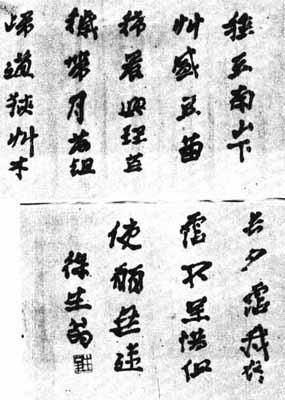 種豆南山下
艸盛豆苗
稀晨興理荒
穢帶月荷鉏
歸道狹艸木
長夕露我衣
霑不足惜但
使願無違
徐生翁